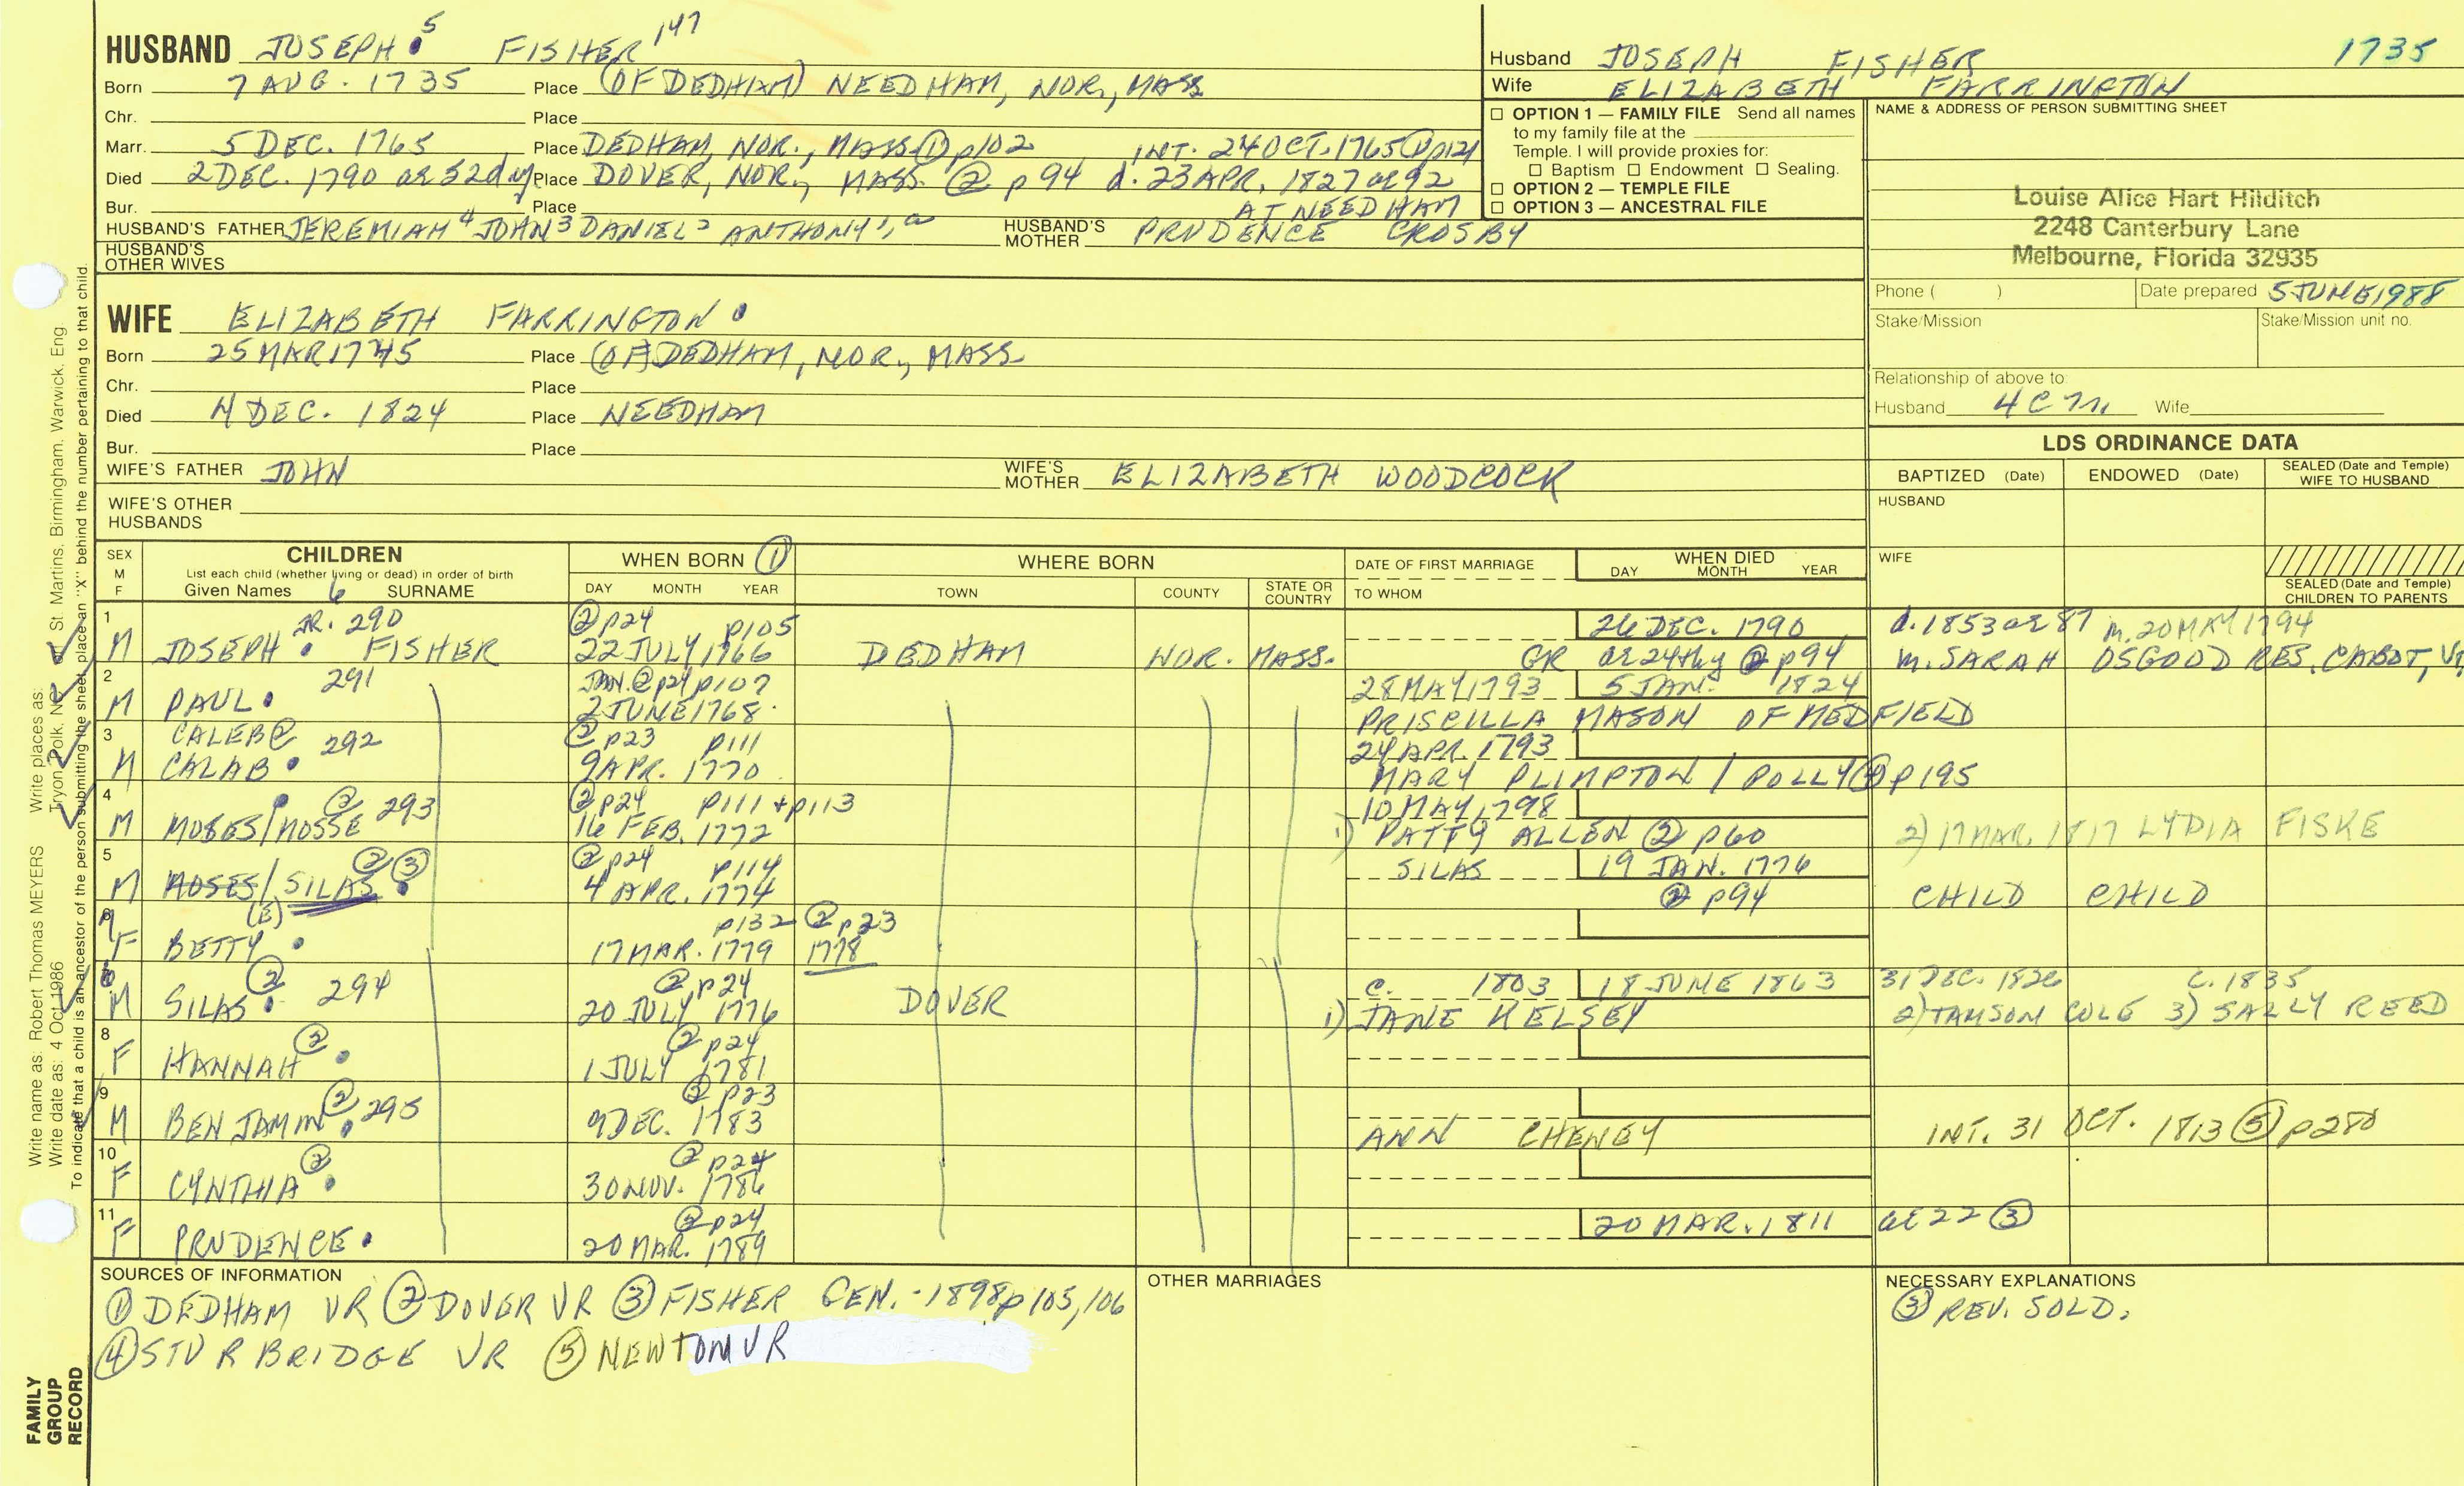 HUSBAND JOSEPH 5 FISHER 147
Born 7 AUG. 1735 Place (OF DEDHAM) NEEDHAM, NOR., MASS
Chr. Place
Marr. 5 DEC. 1765 Place DEDHAM, NOR., MASS ① p102 INT. 24 OCT. 1765 ① p121
Died 2 DEC. 1790 ae 52d y Place DOVER, NOR., MASS. ② p94 d. 23 APR. 1827 ae 92
Bur. Place AT NEEDHAM
HUSBAND'S FATHER JEREMIAH 4 JOHN 3 DANIEL 2 ANTHONY 1, a HUSBAND'S MOTHER PRUDENCE CROSBY
HUSBAND'S OTHER WIVES
WIFE ELIZABETH FARRINGTON
Born 25 MAR 1745 Place (OF) DEDHAM, NOR., MASS
Chr. Place
Died 4 DEC. 1824 Place NEEDHAM
Bur. Place
WIFE'S FATHER JOHN WIFE'S MOTHER ELIZABETH WOODCOCK
WIFE'S OTHER HUSBANDS
Husband JOSEPH FISHER 1735
Wife ELIZABETH FARRINGTON
☐ OPTION 1 — FAMILY FILE Send all names
to my family file at the
Temple. I will provide proxies for:
☐ Baptism ☐ Endowment ☐ Sealing.
☐ OPTION 2 — TEMPLE FILE
☐ OPTION 3 — ANCESTRAL FILE
NAME & ADDRESS OF PERSON SUBMITTING SHEET
Louise Alice Hart Hilditch
2248 Canterbury Lane
Melbourne, Florida 32935
Phone ( ) Date prepared 5 JUNE 1988
Stake/Mission Stake/Mission unit no.
Relationship of above to:
Husband 4C7r Wife
LDS ORDINANCE DATA
BAPTIZED (Date) ENDOWED (Date) SEALED (Date and Temple) WIFE TO HUSBAND
HUSBAND
WIFE
SEALED (Date and Temple) CHILDREN TO PARENTS
SEX M F CHILDREN WHEN BORN ① WHERE BORN DATE OF FIRST MARRIAGE WHEN DIED
List each child (whether living or dead) in order of birth
Given Names 6 SURNAME DAY MONTH YEAR TOWN COUNTY STATE OR COUNTRY TO WHOM DAY MONTH YEAR
1 JR. 290 ② p24 p105 26 DEC. 1790 d. 1853 ae 87 m. 20 MAY 1794
M JOSEPH FISHER 22 JULY 1766 DEDHAM NOR. MASS. GR ae 24thy ② p94 m. SARAH OSGOOD RES. CABOT, Vt
2 291 JAN. ② p24 p107 28 MAY 1793 5 JAN. 1824
M PAUL 2 JUNE 1768 PRISCILLA MASON OF MEDFIELD
3 CALEB ② 292 ② p23 p111 24 APR. 1793
M CALAB 9 APR. 1770 MARY PLIMPTON / POLLY ④ p195
4 ② 293 ② p24 p111 + p113 10 MAY 1798
M MOSES/MOSSE 16 FEB. 1772 1) PATTY ALLEN ② p60 2) 17 MAR. 1817 LYDIA FISKE
5 ② ③ ② p24 p114 SILAS 19 JAN. 1776
M MOSES/SILAS 4 APR. 1774 ② p94 CHILD CHILD
7 (E) p132 ② p23
F BETTY 17 MAR. 1779 1778
6 ② 294 ② p24 c. 1803 18 JUNE 1863 31 DEC. 1826 c. 1835
M SILAS 20 JULY 1776 DOVER 1) JANE KELSEY 2) TAMSON COLE 3) SALLY REED
8 ② ② p24
F HANNAH 1 JULY 1781
9 ② 295 ② p23
M BENJAMIN 9 DEC. 1783 ANN CHENEY INT. 31 OCT. 1813 ⑤ p280
10 ② ② p24
F CYNTHIA 30 NOV. 1786
11 ② p24 20 MAR. 1811 ae 22 ③
F PRUDENCE 20 MAR. 1789
SOURCES OF INFORMATION
① DEDHAM VR ② DOVER VR ③ FISHER GEN. - 1898 p 105, 106
④ STURBRIDGE VR ⑤ NEWTON VR
OTHER MARRIAGES
NECESSARY EXPLANATIONS
③ REV. SOLD.
Write name as: Robert Thomas MEYERS Write places as:
Write date as: 4 Oct 1986 Tryon, Polk, St. Martins, Birmingham, Warwick, Eng
To indicate that a child is an ancestor of the person submitting the sheet, place an "X" behind the number pertaining to that child.
FAMILY
GROUP
RECORD